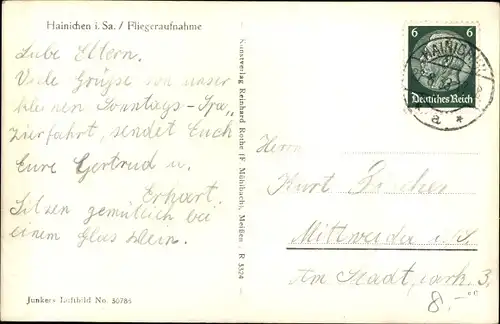 Hainichen i. Sa. / Fliegeraufnahme
Liebe Eltern.
Viele Grüße von unser
kleinen Sonntags-Spa„
zierfahrt, sendet Euch
Eure Gertrud u.
Erhart.
Sitzen gemütlich bei
einem Glas Wein.
Junkers Luftbild No. 30786
Kunstverlag Reinhard Rothe (F. Mühlbach), Meißen / R 3324
6 6
Deutsches Reich
HAINICHEN
a
Herrn
Kurt Fischer
Mittweida i. Sa.
Am Stadtpark 3,
8,-